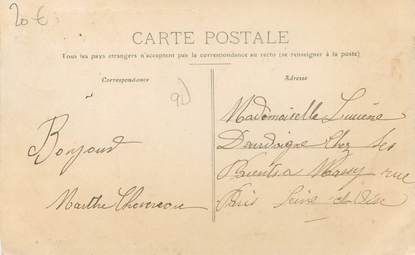 20 €
CARTE POSTALE
Tous les pays étrangers n'acceptent pas la correspondance au recto (se renseigner à la poste)
Correspondance
Adresse
Bonjour
Marthe
Mademoiselle
chez ses
Parents a Massy rue
Paris Seine et Oise